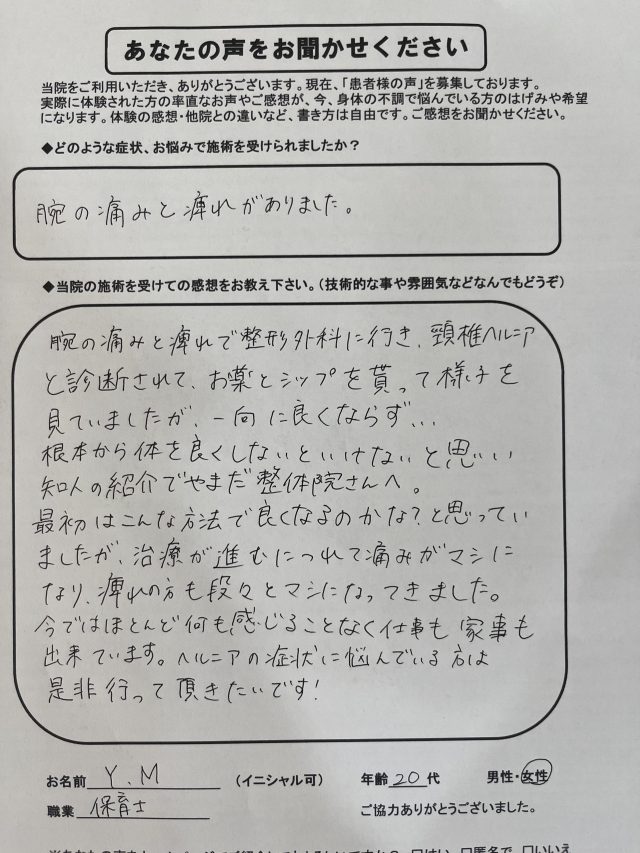 あなたの声をお聞かせください
当院をご利用いただき、ありがとうございます。現在、「患者様の声」を募集しております。
実際に体験された方の率直なお声やご感想が、今、身体の不調で悩んでいる方のはげみや希望
になります。体験の感想・他院との違いなど、書き方は自由です。ご感想をお聞かせください。
◆どのような症状、お悩みで施術を受けられましたか？
腕の痛みと痺れがありました。
◆当院の施術を受けての感想をお教え下さい。（技術的な事や雰囲気などなんでもどうぞ）
腕の痛みと痺れで整形外科に行き、頸椎ヘルニア
と診断されて、お薬とシップを貰って様子を
見ていましたが、一向に良くならず...
根本から体を良くしないといけないと思い
知人の紹介でやまだ整体院さんへ。
最初はこんな方法で良くなるのかな？と思ってい
ましたが、治療が進むにつれて痛みがマシに
なり、痺れの方も段々とマシになってきました。
今ではほとんど何も感じることなく仕事も家事も
出来ています。ヘルニアの症状に悩んでいる方は
是非行って頂きたいです！
お名前 Y.M （イニシャル可） 年齢 20 代 男性・女性
職業 保育士 ご協力ありがとうございました。